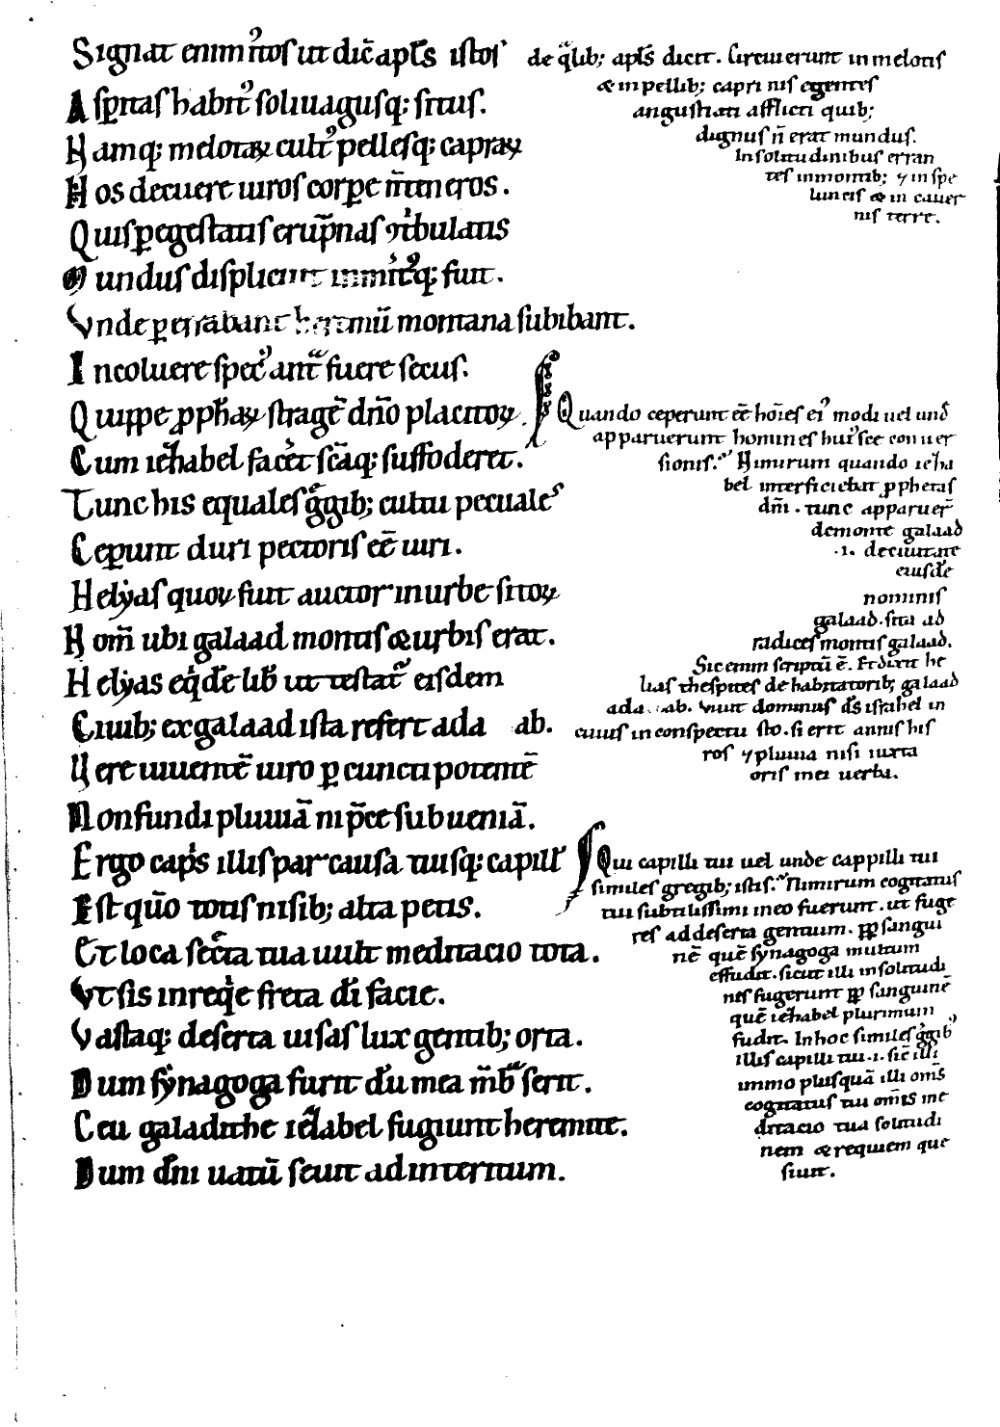 Signat enim n̄os ut dic̄ apl̄s istos
Asp̲itas habit᾽ soliuagusq; situs.
Hamq; melotaꝝ cult᾽ pellesq; capraꝝ
Hos decuere uiros corp̲e m̄te n̄eros.
Quis p̲ egestatis erūpnas ꝯtͥbulatis
Mundus displicuit inmitͥq; fuit.
Vnde p̲errabant heremū montana subibant.
Incoluere spec᾽ antͣ fuere secus.
Quippe ꝓph̄aꝝ stragē dn̄o placitoꝝ.
Cum iezhabel facͥet sc̄aq; suffoderet.
Tunc his equales gͤgib; cultu pecuales
Cep̲unt duri pectoris ēe uiri.
Helyas quoꝝ fuit auctor in urbe sitoꝝ
Hom̄ ubi galaad montis & urbis erat.
Helyas eqͥdē lib᾽ ut testatͣ eisdem
Ciuib; ex galaad ista refert ada ab.
Vere uiuentē uiro p̲ cuncta potentē
Non fundi pluuiā ni p̄ce subueniā.
Ergo capͥs illis par causa tuisq; capill᾽
Est quō totis nisib; alta petis.
Et loca secͤta tua uult meditacio tota.
Vt sis in reqͥe freta dī facie.
Vastaq; deserta uisas lux gentib; orta.
Dum synagoga furit dū mea m̄bͣ serit.
Ceu galadithe iezabel fugiunt heremite.
Dum dn̄i uatū seuit ad interitum.
de qͣlib; apl̄s dicit. Circuierunt in melotis
& in pellib; capri nis egentes
angustiati afflicti quib;
dignus n̄ erat mundus.
In solitudinibus erran
tes in montib; ⁊ in spe
luncis & in cauer
nis terre.
Quando ceperunt ēe hoīes ei᾽ modi uel und̄
apparuerunt homines hui᾽ sec conuer
sionis. Nimirum quando iezha
bel interficiebat ꝓphetas
dn̄i. tunc apparuer̄
de monte galaad
.i. de ciuitate
eiusdē
nominis
galaad. sita ad
radices montis galaad.
Sic enim scriptū ē. Et dixit he
lias thespites de habitatorib; galaad
ada ab. Viuit dominus ds̄ israhel in
cuius in conspectu sto. si erit annis his
ros ⁊ pluuia nisi iuxta
oris mei uerba.
Qui capilli tui uel unde cappilli tui
similes gregib; istis. Nimirum cogitatus
tui subtilissimi in eo fuerunt. ut fuge
res ad deserta gentium. ꝓp̲ sangui
nē quē synagoga multum
effudit. sicut illi in solitudi
nes fugerunt ꝓp̲ sanguinē
quē iezhabel plurimum
fudit. In hoc similes gͤgib᾽
illis capilli tui .i. sic̄ illi
immo plusquā illi om̄s
cogitatus tui om̄is me
ditacio tua solitudi
nem & requiem que
siuit.